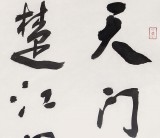 天门
楚江